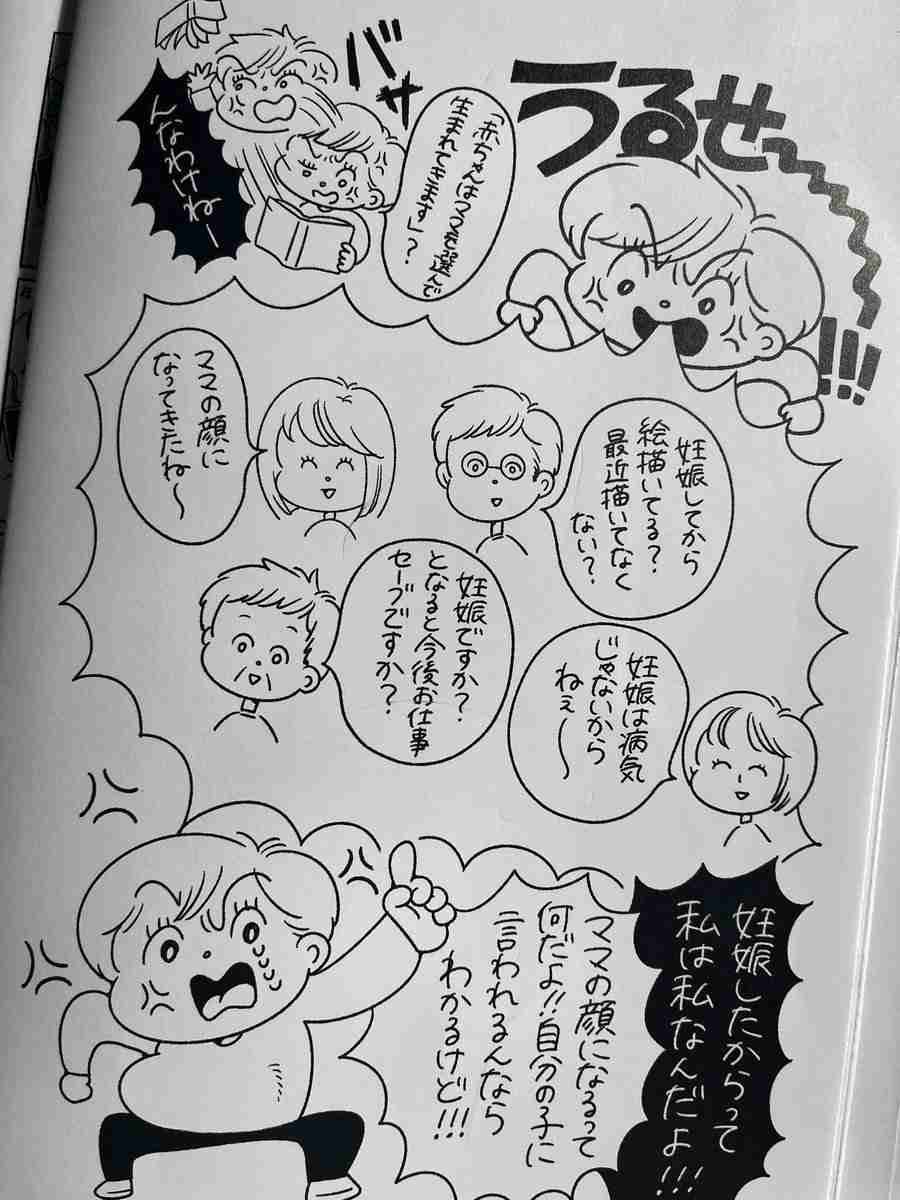 うるせ〜〜〜!!!
バサ
「赤ちゃんはママを選んで
生まれてきます」?
んなわけねー
妊娠してから
絵描いてる?
最近描いてなく
ない?
ママの顔に
なってきたね〜
妊娠ですか?
となると今後お仕事
セーブですか?
妊娠は病気
じゃないから
ねぇ〜
妊娠したからって
私は私なんだよ!!!
ママの顔になるって
何だよ!!自分の子に
言われるんなら
わかるけど!!!